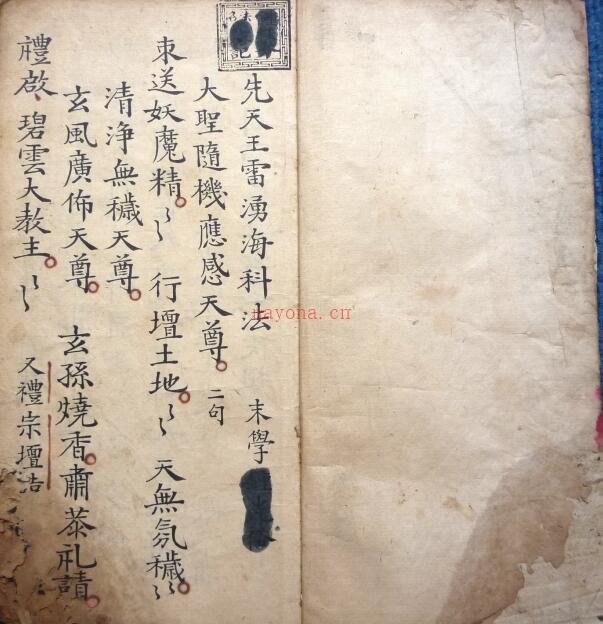 先天王雷湧海科法 末學
大聖隨機應感天尊。二句
束送妖魔精。〻 行壇土地。〻 天無氛穢。〻
清淨無穢天尊。
玄風廣佈天尊。 玄孫燒香。肅恭礼請。
禮啟、碧雲大教主。〻 又禮宗壇吉
nayona.cn